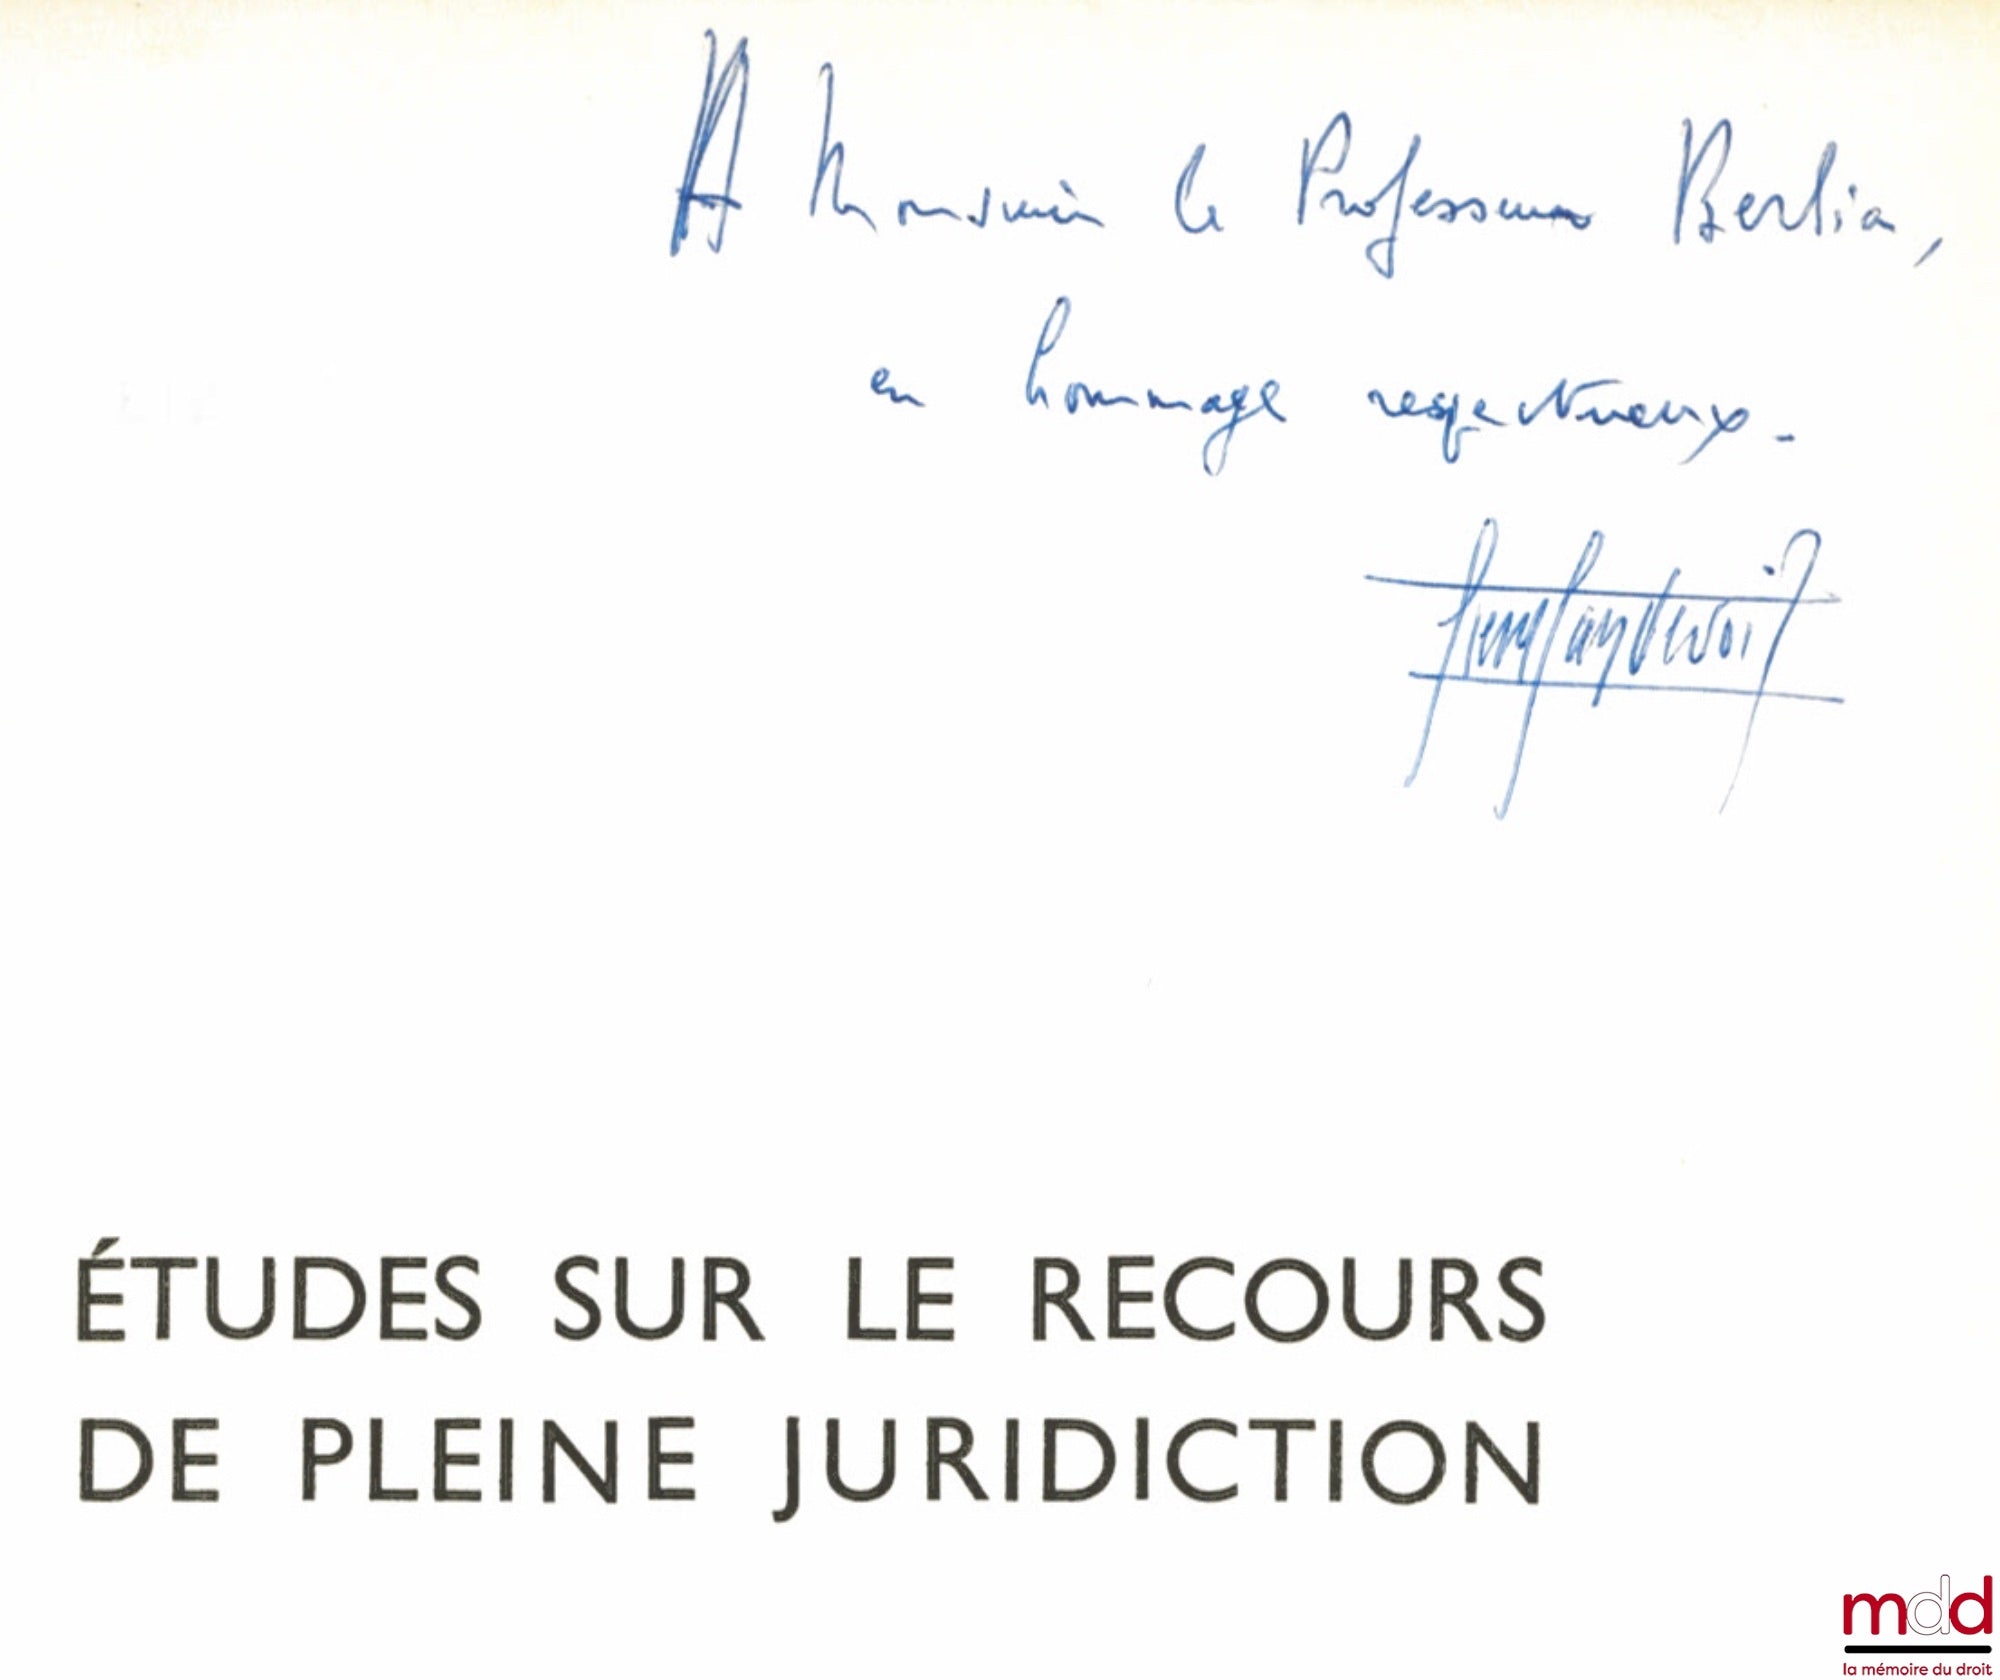 A Monsieur le Professeur Berlia,
en hommage respectueux.
ÉTUDES SUR LE RECOURS
DE PLEINE JURIDICTION
mdd
la mémoire du droit